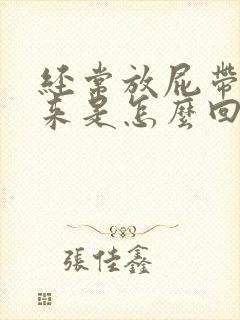 經常放屁帶
來是怎麼回
張佳鑫